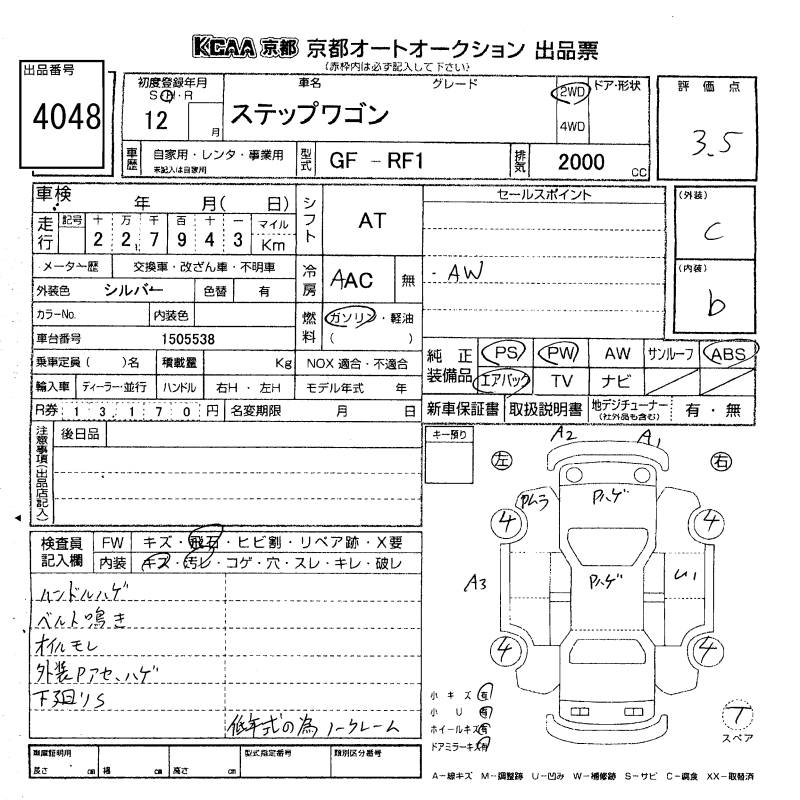 KCAA 京都 京都オートオークション 出品票
(赤枠内は必ず記入して下さい)
出品番号
4048
初度登録年月
S・H・R
12 月
車名 グレード
ステップワゴン
2WD
4WD
ドア・形状
評価点
3.5
車歴 自家用・レンタ・事業用
未記入は自家用
型式 GF -RF1
排気 2000 CC
車検 年 月( 日)
シフト AT
セールスポイント
・AW
(外装)
C
(内装)
b
走行 記号 十 万 千 百 十 一 マイル
2 2 7 9 4 3 Km
メーター歴 交換車・改ざん車・不明車
冷房 AAC 無
外装色 シルバー 色替 有
カラーNo. 内装色
燃料 ガソリン・軽油
( )
車台番号 1505538
乗車定員( )名 積載量 Kg NOX 適合・不適合
輸入車 ディーラー・並行 ハンドル 右H・左H モデル年式 年
R券 13170円 名変期限 月 日
純正装備品 PS PW AW サンルーフ ABS
エアバック TV ナビ
新車保証書 取扱説明書 地デジチューナー
(社外品も含む) 有・無
注意事項(出品店記入)
後日品
キー預り
左 右
A2 A1
PムラPハゲ
4 4
A3 Pハゲ U1
4 4
検査員記入欄 FW キズ・飛石・ヒビ割・リペア跡・X要
内装 キズ・汚レ・コゲ・穴・スレ・キレ・破レ
ハンドルハゲ
ベルト鳴き
オイルモレ
外装Pアセ、ハゲ
下廻りS
低年式の為ノークレーム
小キズ 有
小U 有
ホイールキズ 有
ドアミラーキズ 有
T
スペア
車庫証明用
長さ cm 幅 cm 高さ cm
型式指定番号 類別区分番号
A-線キズ M-調整跡 U-凹み W-補修跡 S-サビ C-腐食 XX-取替済